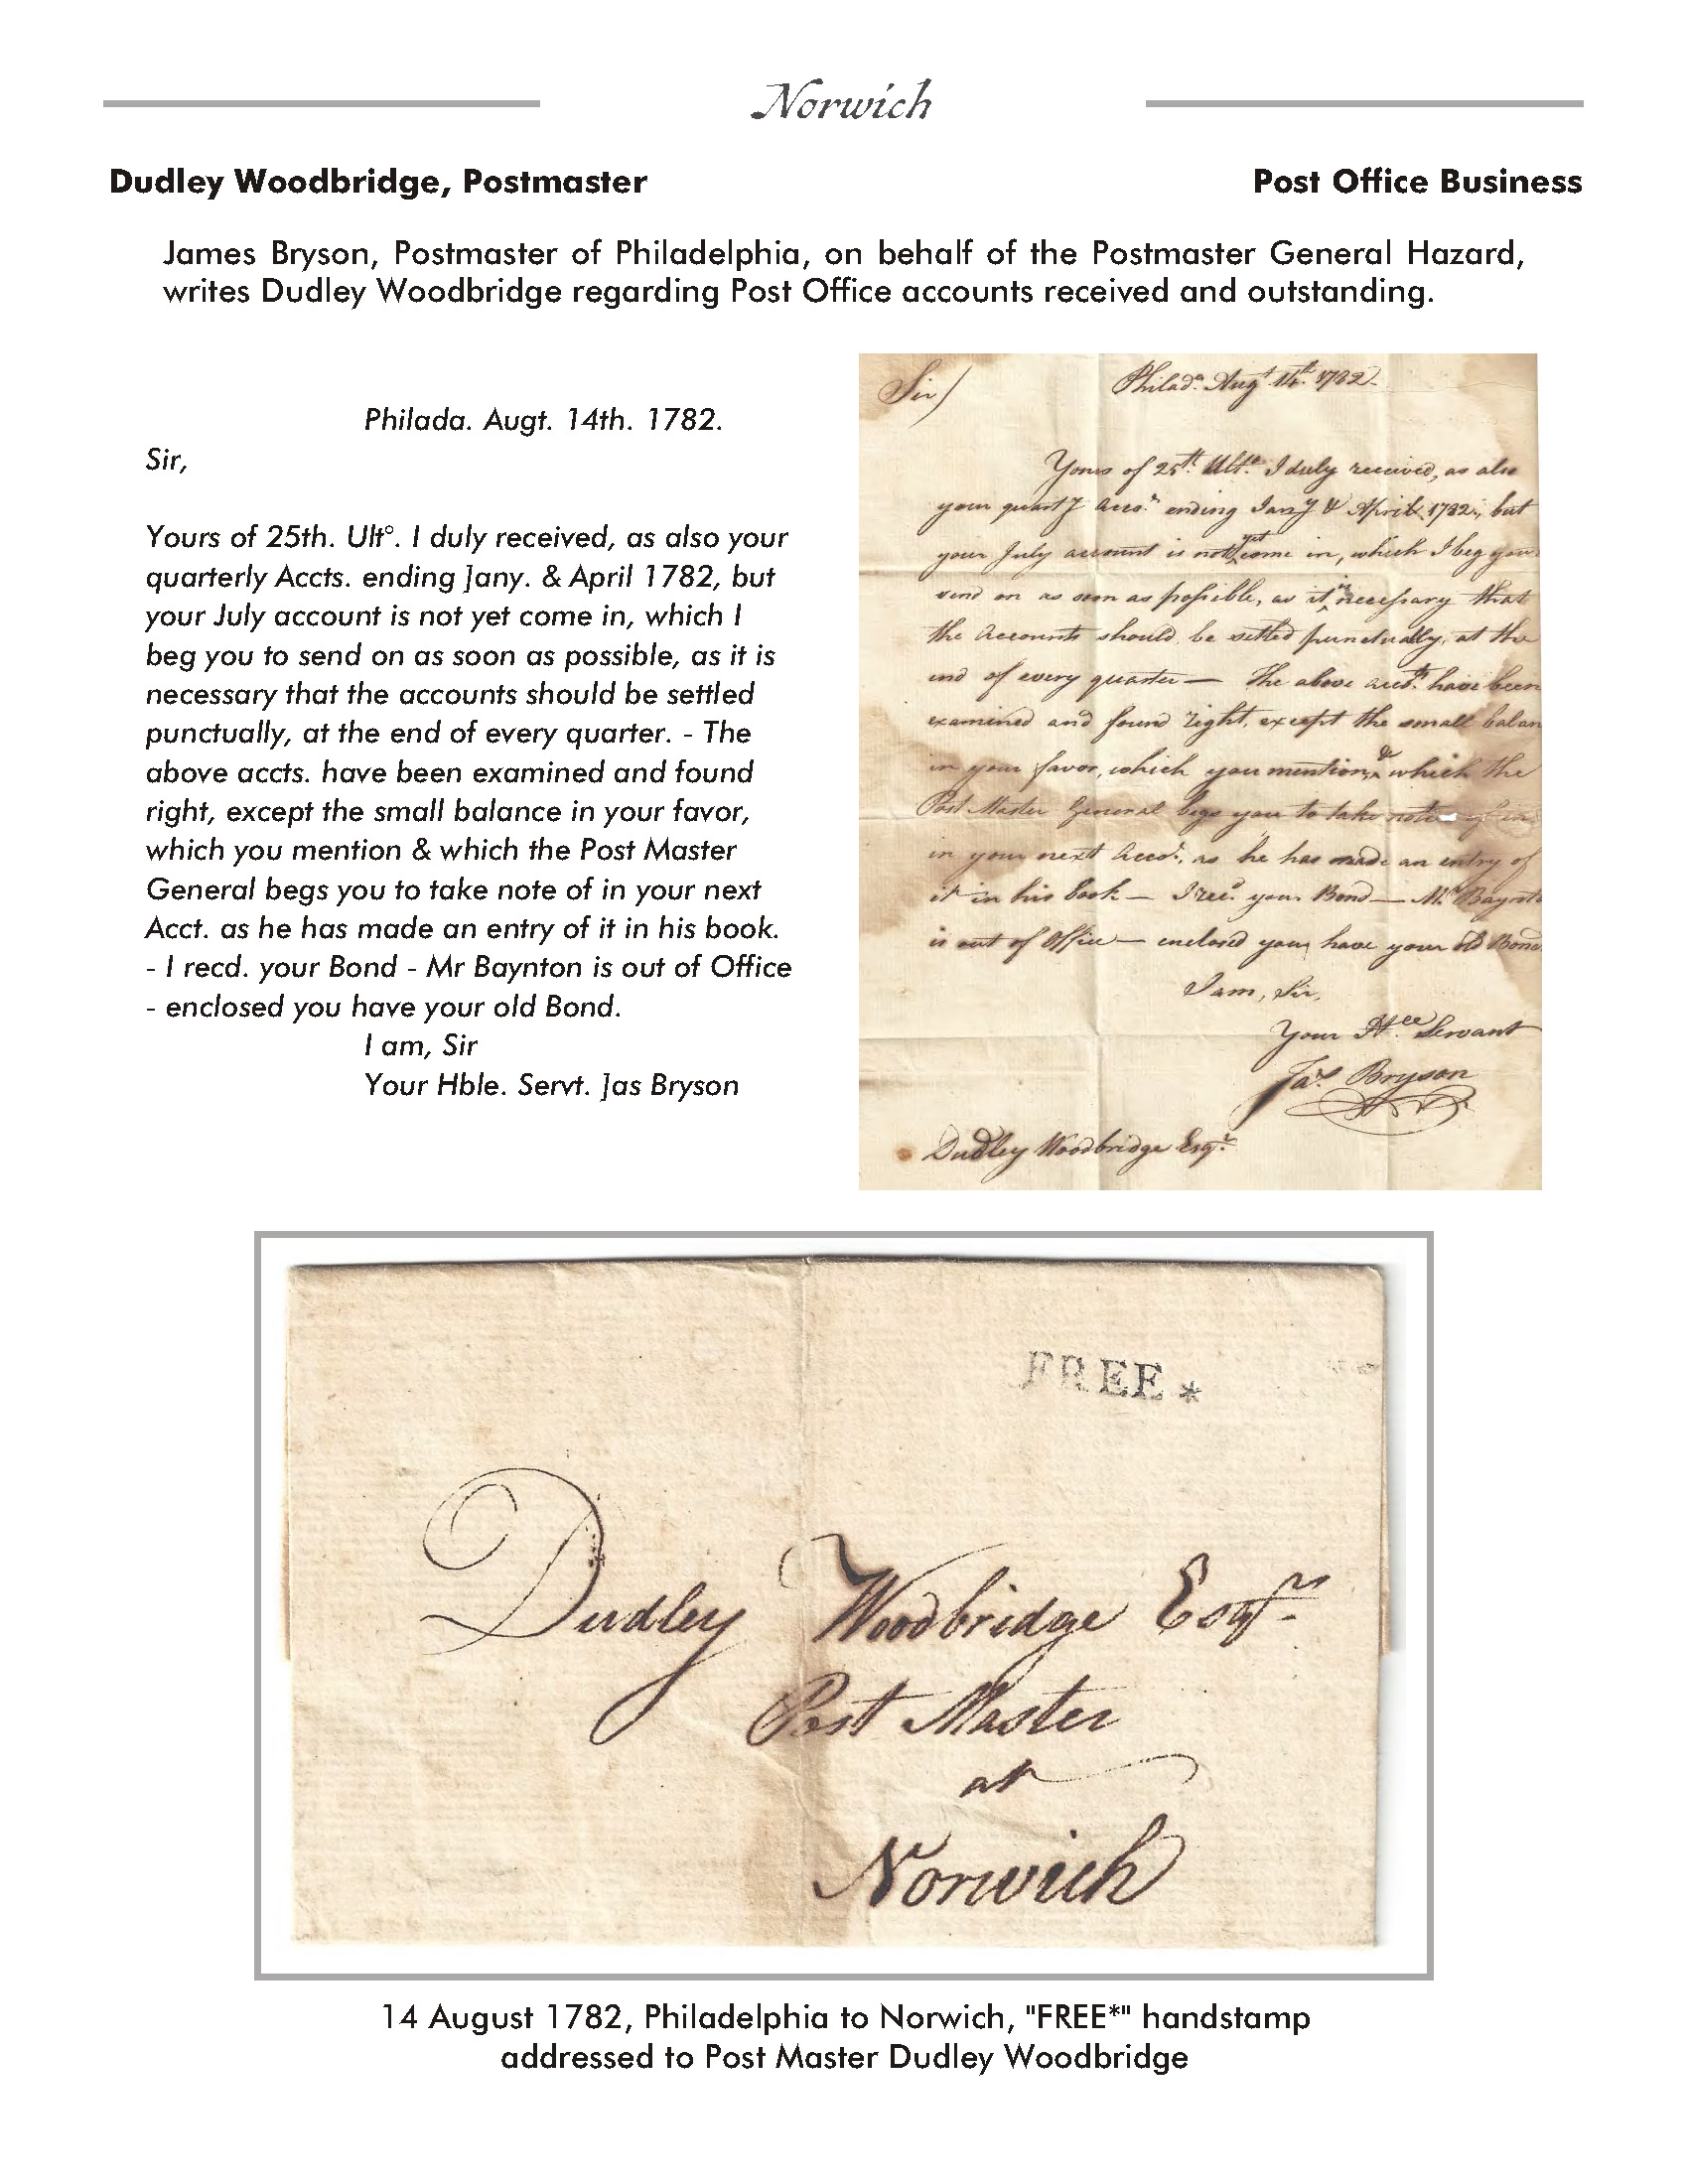 Norwich
Dudley Woodbridge, Postmaster
Post Office Business
James Bryson, Postmaster of Philadelphia, on behalf of the Postmaster General Hazard,
writes Dudley Woodbridge regarding Post Office accounts received and outstanding.
Philada. Augt. 14th. 1782.
Sir,
Yours of 25th. Ult°. I duly received, as also your
quarterly Accts. ending Jany. & April 1782, but
your July account is not yet come in, which I
beg you to send on as soon as possible, as it is
necessary that the accounts should be settled
punctually, at the end of every quarter. - The
above accts. have been examined and found
right, except the small balance in your favor,
which you mention & which the Post Master
General begs you to take note of in your next
Acct. as he has made an entry of it in his book.
- I recd. your Bond - Mr Baynton is out of Office
- enclosed you have your old Bond.
I am, Sir
Your Hble. Servt. Jas Bryson
Sir/ Philada. Augt. 14th. 1782.
Yours of 25th. Ulto. I duly received, as also
your quartly Accots. ending Jany & April 1782, but
your July account is not yet come in, which I beg you
send on as soon as possible, as it is necessary that
the Accounts should be settled punctually, at the
end of every quarter — The above accots. have been
examined and found right, except the small balan
in your favor, which you mention, & which the
Post Master General begs you to take note of in
in your next Accot., as he has made an entry of
it in his book — I recd. your Bond — Mr. Baynto
is out of Office — enclosed you have your old Bond
I am, Sir,
Your Hble Servant
Jas Bryson
Dudley Woodbridge Esqr.
FREE*
Dudley Woodbridge Esqr.
Post Master
at
Norwich
14 August 1782, Philadelphia to Norwich, "FREE*" handstamp
addressed to Post Master Dudley Woodbridge